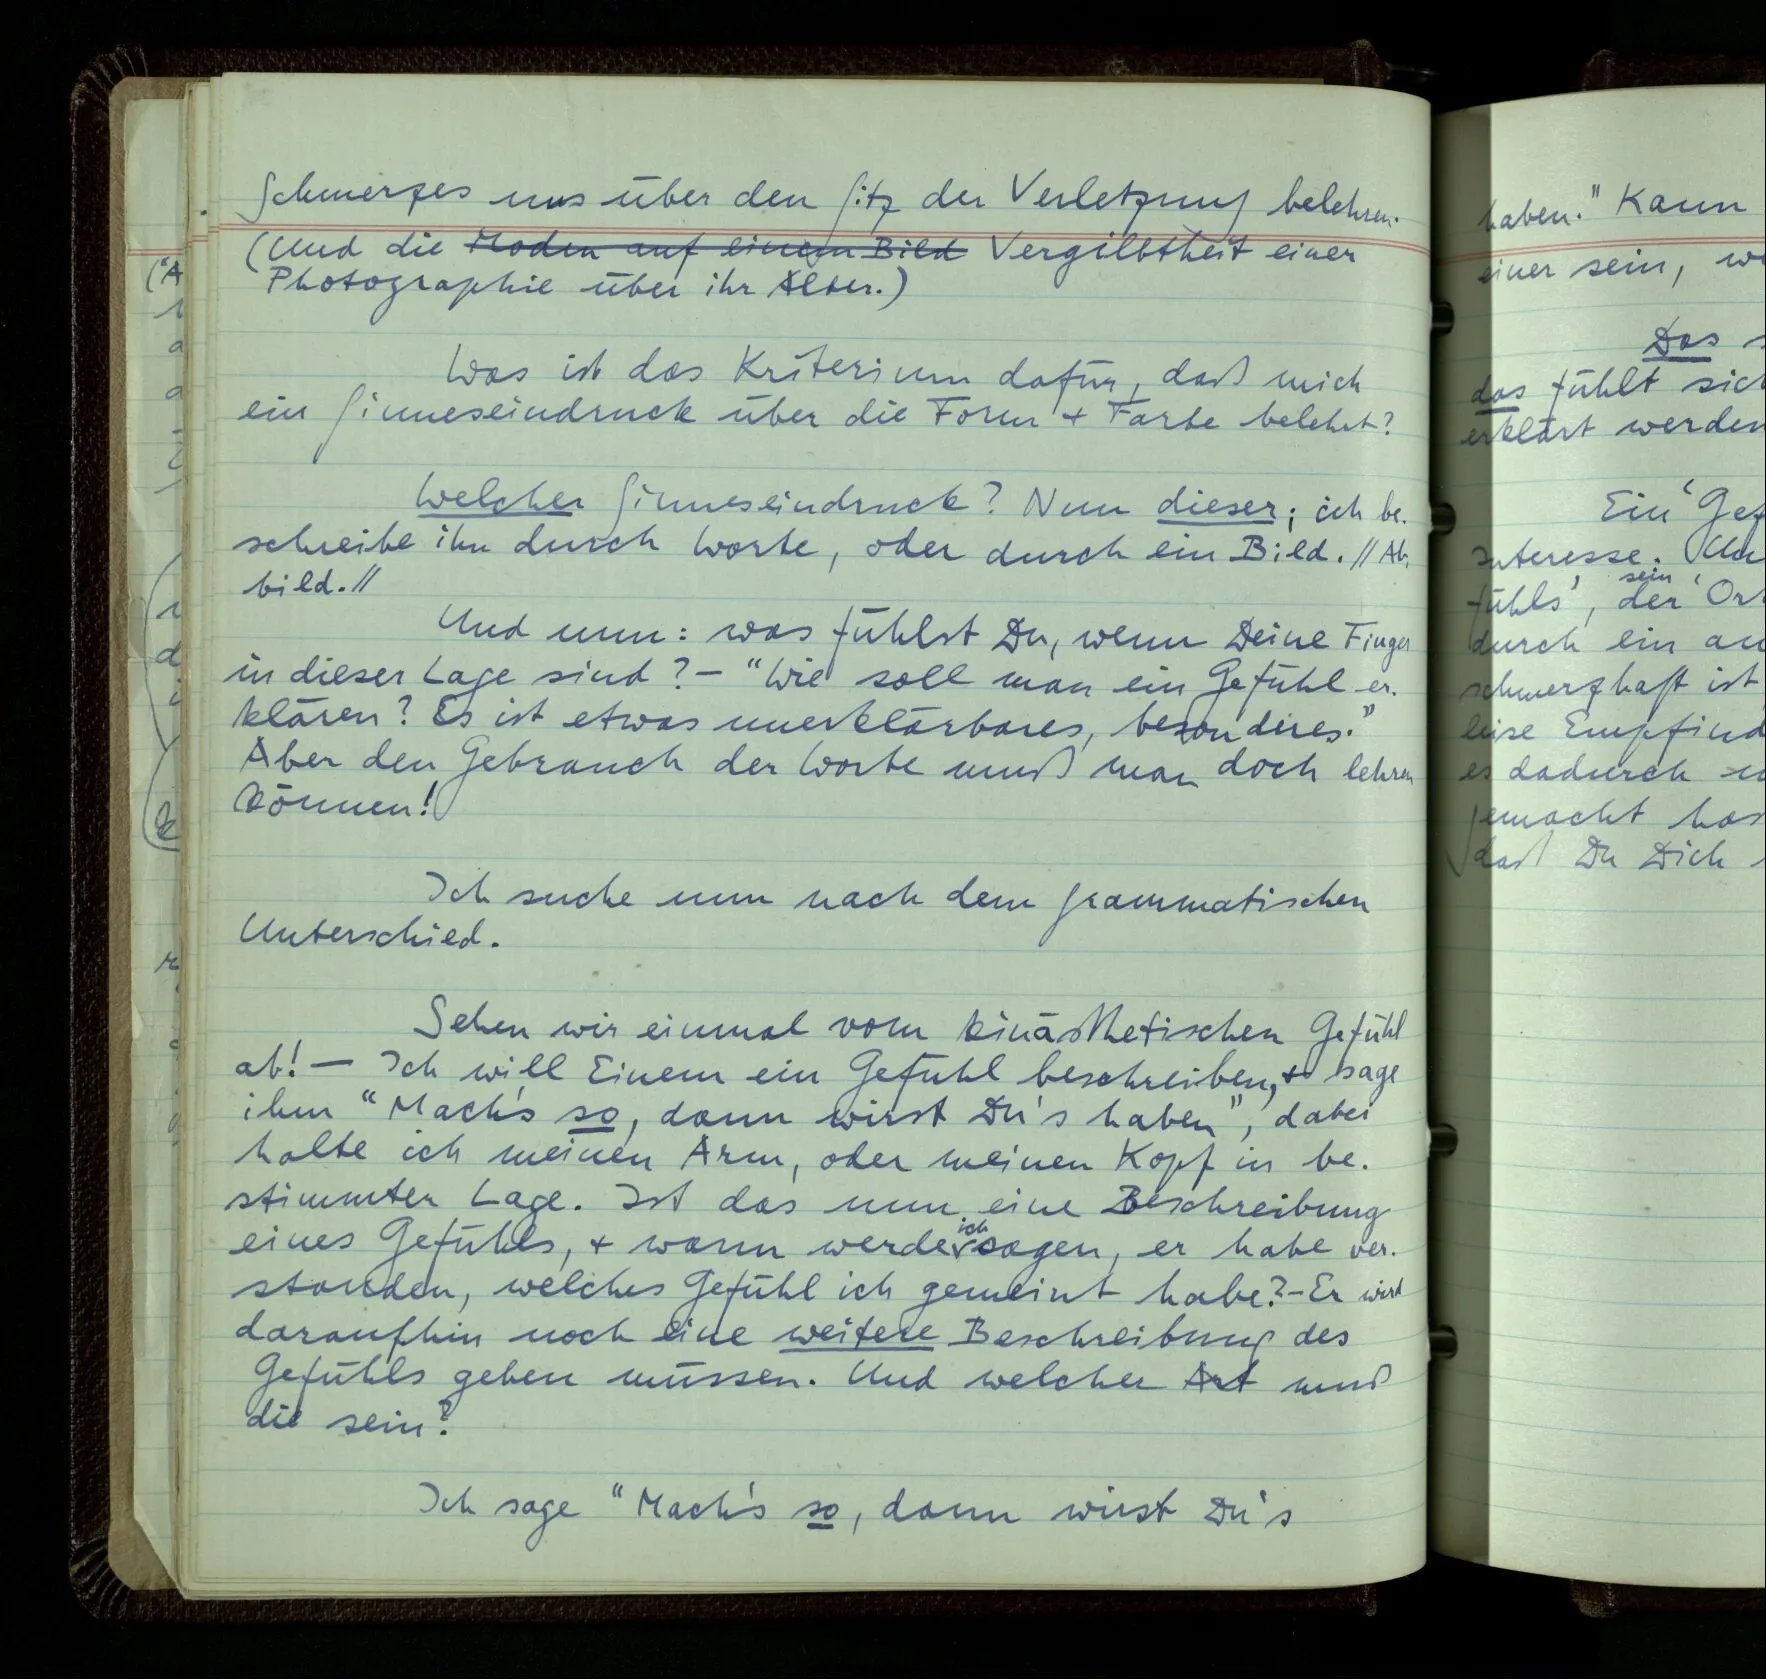 Schmerzes uns über den Sitz der Verletzung belehren.
(Und die Moden auf einem Bild Vergilbtheit einer
Photographie über ihr Alter.)
Was ist das Kriterium dafür, daß mich
ein Sinneseindruck über die Form + Farbe belehrt?
Welcher Sinneseindruck? Nun dieser; ich be-
schreibe ihn durch Worte, oder durch ein Bild. // Ab-
bild. //
Und nun: was fühlst Du, wenn Deine Finger
in dieser Lage sind? – "Wie soll man ein Gefühl er-
klären? Es ist etwas unerklärbares, besonderes."
Aber den Gebrauch der Worte muß man doch lehren
können!
Ich suche nun nach dem grammatischen
Unterschied.
Sehen wir einmal vom kinästhetischen Gefühl
ab! – Ich will Einem ein Gefühl beschreiben, + sage
ihm "Mach's so, dann wirst Du's haben", dabei
halte ich meinen Arm, oder meinen Kopf in be-
stimmter Lage. Ist das nun eine Beschreibung
eines Gefühls, + wann werde ich sagen, er habe ver-
standen, welches Gefühl ich gemeint habe? – Er wird
daraufhin noch eine weitere Beschreibung des
Gefühls geben müssen. Und welcher Art muß
die sein?
Ich sage "Mach's so, dann wirst Du's
haben." Kann
einer sein,
Das
das fühlt sich
erklärt werden
Ein 'Gef
Interesse.
fühls', sein der 'Ort
durch ein
schmerzhaft ist
leise Empfind
es dadurch
gemacht has
daß Du Dich